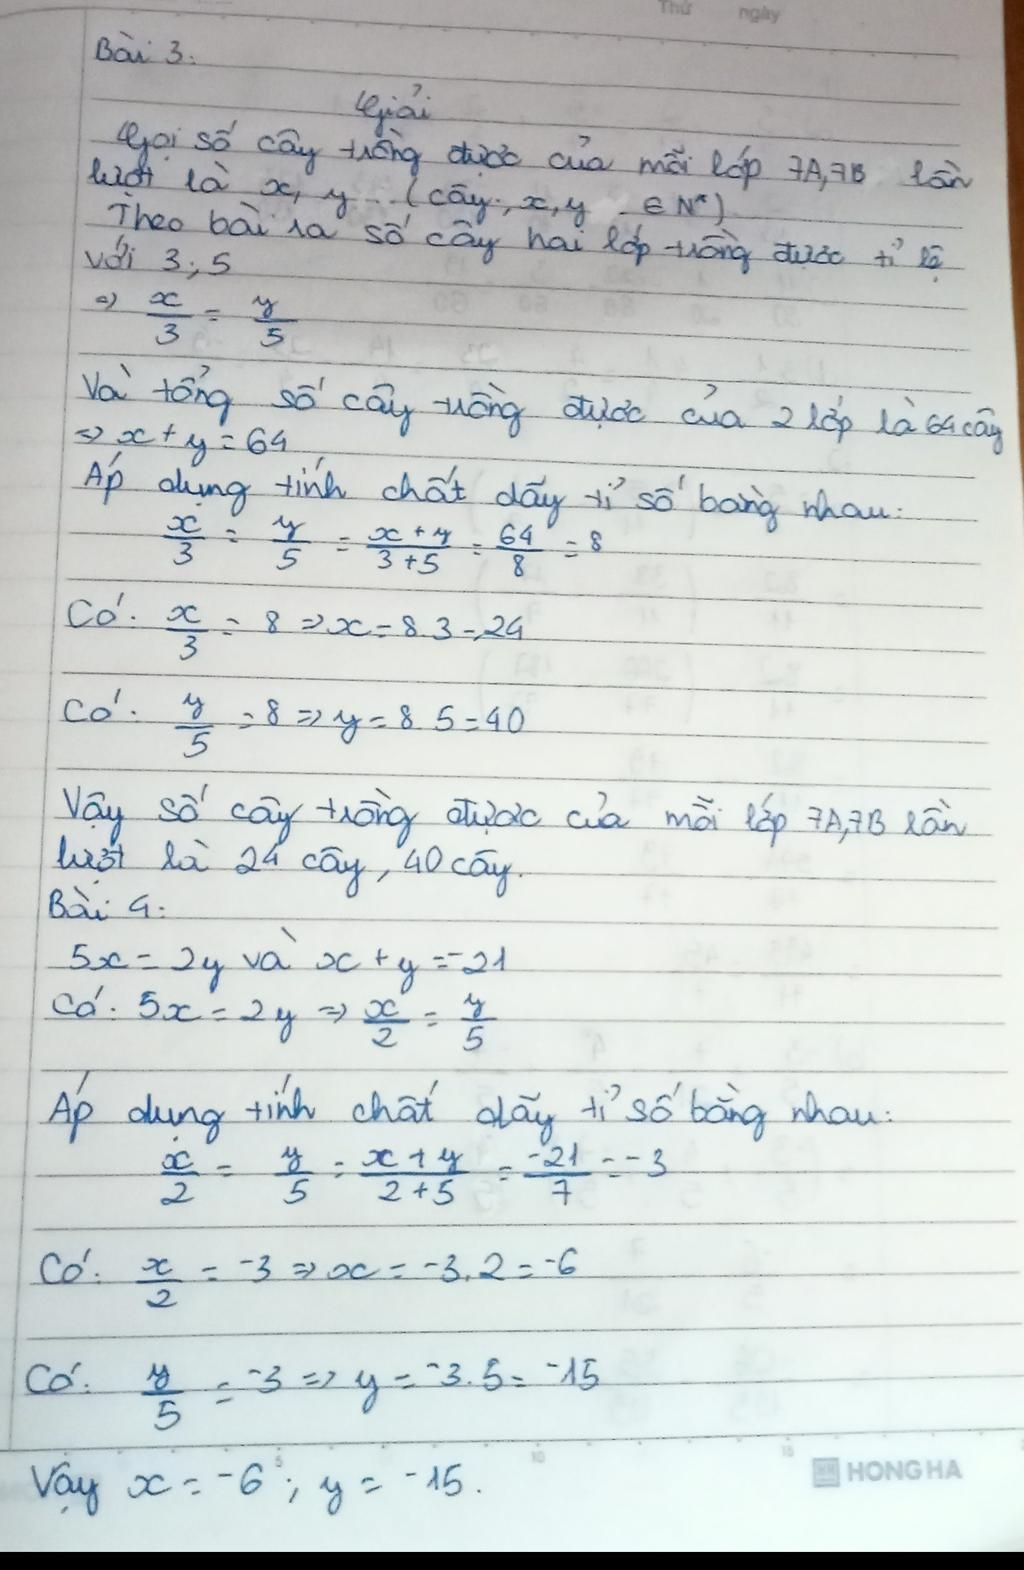 Thứ ngày
Bài 3:
Giải
Gọi số cây trồng được của mỗi lớp 7A,7B lần
lượt là x, y (cây, x,y ∈ N*)
Theo bài ra số cây hai lớp trồng được tỉ lệ
với 3;5
=> x/3 = y/5
Và tổng số cây trồng được của 2 lớp là 64 cây
=> x + y = 64
Áp dụng tính chất dãy tỉ số bằng nhau:
x/3 = y/5 = x+y/3+5 = 64/8 = 8
Có: x/3 = 8 => x = 8.3 = 24
Có: y/5 = 8 => y = 8.5 = 40
Vậy số cây trồng được của mỗi lớp 7A,7B lần
lượt là 24 cây, 40 cây.
Bài 4:
5x = 2y và x + y = -21
Có: 5x = 2y => x/2 = y/5
Áp dụng tính chất dãy tỉ số bằng nhau:
x/2 = y/5 = x+y/2+5 = -21/7 = -3
Có: x/2 = -3 => x = -3.2 = -6
Có: y/5 = -3 => y = -3.5 = -15
5 10 15
HONG HA
Vậy x = -6 ; y = -15.